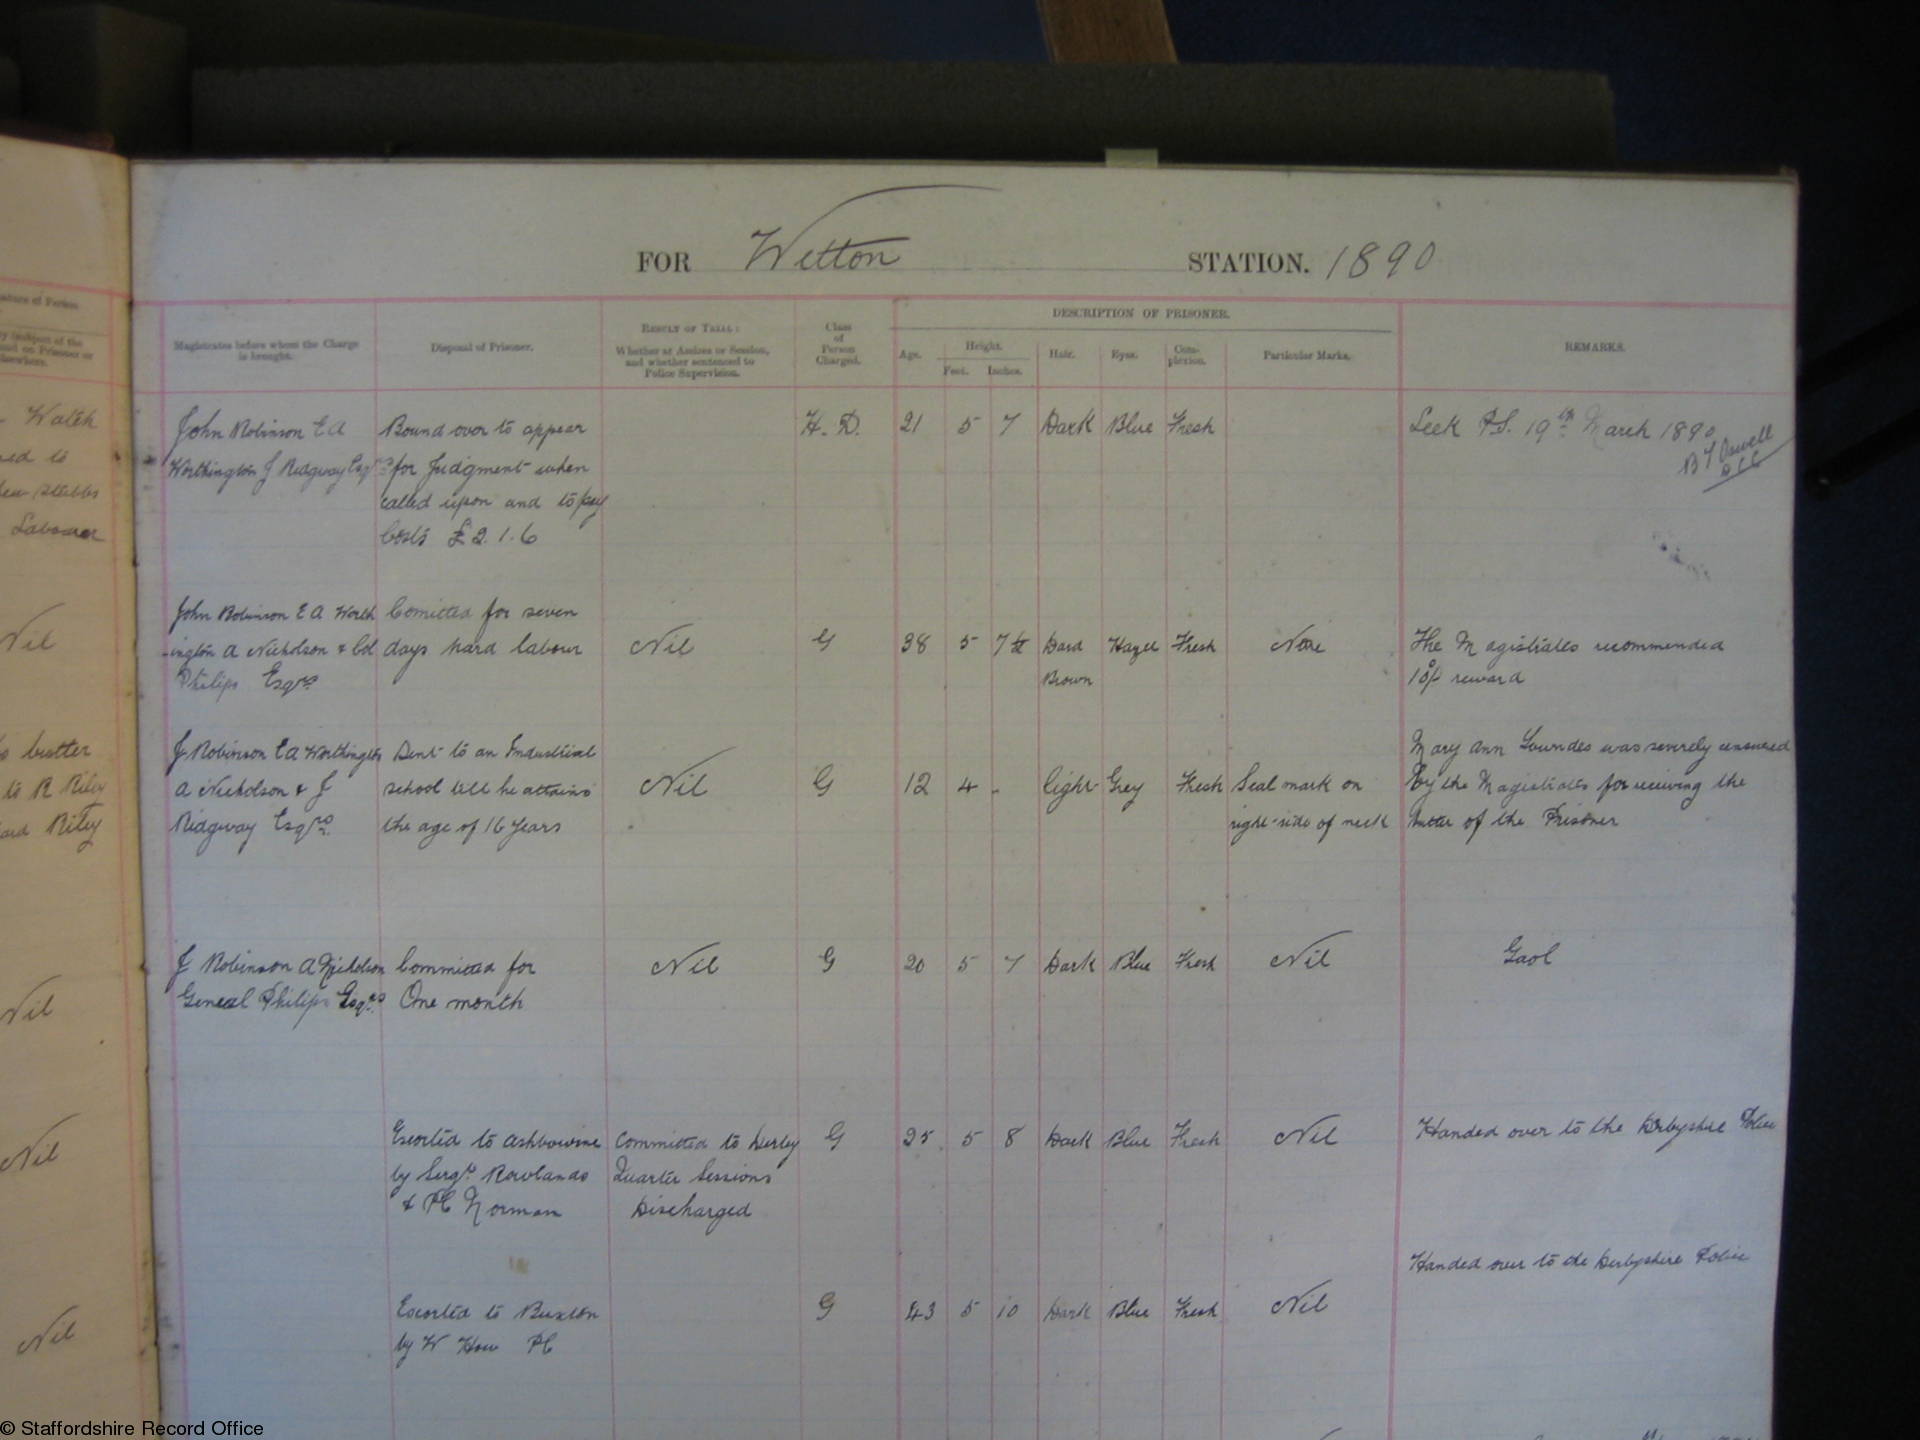 FOR Wetton STATION. 1890
Magistrates before whom the Charge
is brought.
Disposal of Prisoner.
RESULT OF TRIAL:
Whether at Assizes or Session,
and whether sentenced to
Police Supervision.
Class
of
Person
Charged.
DESCRIPTION OF PRISONER.
Age.
Height.
Feet. Inches.
Hair.
Eyes.
Com-
plexion.
Particular Marks.
REMARKS.
Walch
Stubbs
Labourer
Nil
butter
to R Riley
Riley
Nil
Nil
Nil
John Robinson E A
Worthington J Ridgway Esqrs
Bound over to appear
for Judgment when
called upon and to pay
Costs £2.1.6
H. D. 21 5 7 Dark Blue Fresh
Leek P.S. 19th March 1890
John Robinson E A Worth
-ington A Nicholson & Col
Philips Esqrs
Comitted for seven
days hard labour
Nil
G 38 5 7½ Dard
Brown
Hazel Fresh None
The Magistrates recommended
10/- reward
J Robinson E A Worthington
A Nicholson & J
Ridgway Esqrs
Sent to an Industrial
school till he attains
the age of 16 years
Nil
G 12 4 - light Grey Fresh
Seal mark on
right side of neck
Mary Ann Lowndes was severly censured
by the Magistrates for receiving the
butter of the Prisoner
J Robinson A Nicholson
General Philips Esqrs
Committed for
One month
Nil
G 20 5 7 Dark Blue Fresh Nil
Gaol
Escorted to Ashbourne
by Sergt Rowlands
& PC Norman
Committed to Derby
Quarter Sessions
Discharged
G 25 5 8 Dark Blue Fresh Nil
Handed over to the Derbyshire Police
Escorted to Buxton
by W How PC
G 43 5 10 Dark Blue Fresh Nil
Handed over to the Derbyshire Police
© Staffordshire Record Office